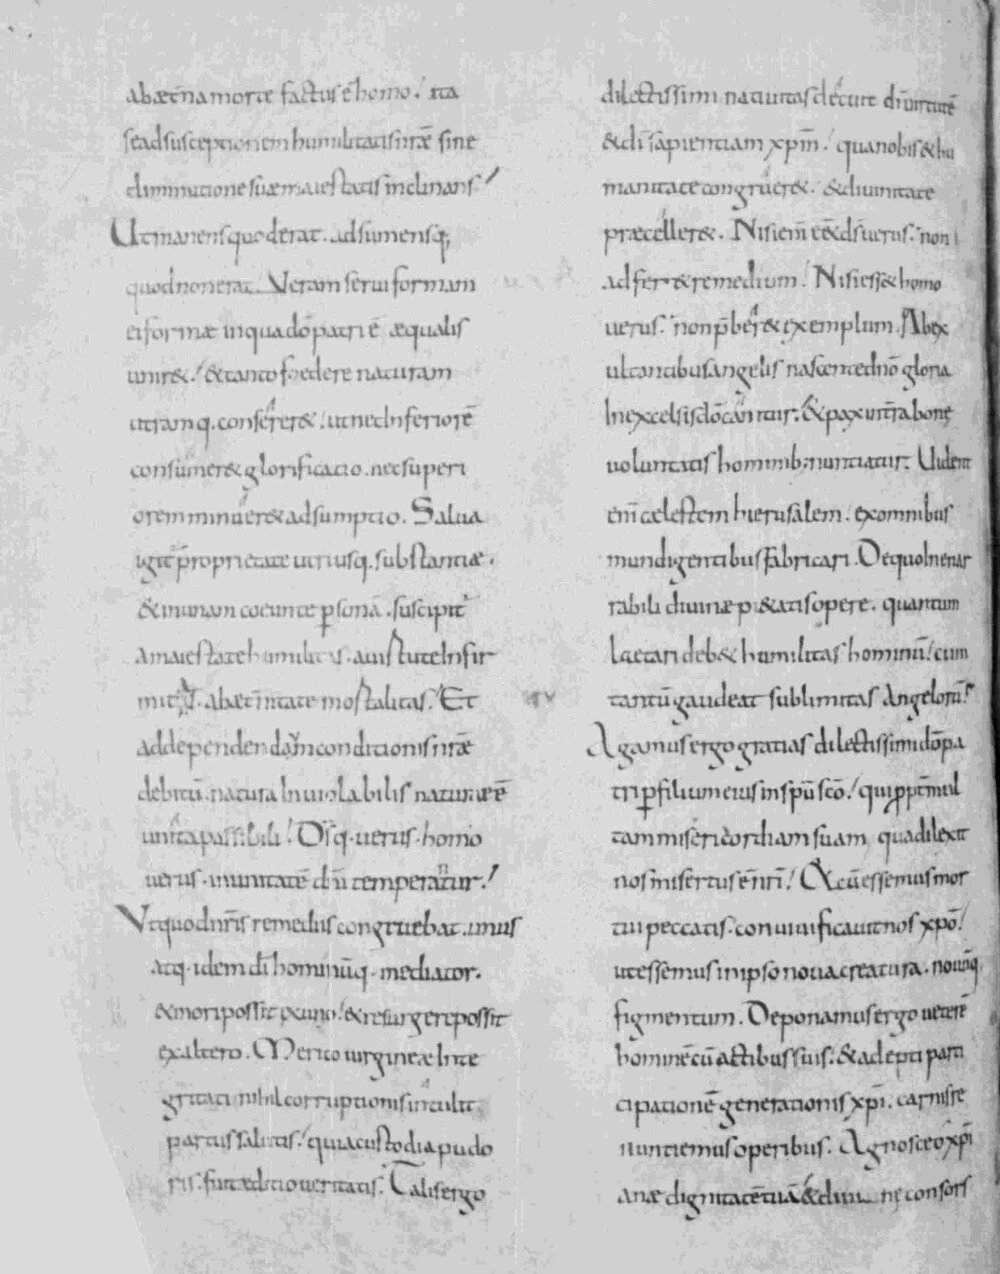 ab æt̄na morte factus ē homo! ita
se ad susceptionem humilitatis nr̄æ sine
diminutione suæ maiestatis inclinans!
Ut manens quod erat. adsumensq;
quod non erat. Veram serui formam
ei formæ in qua dō patri ē æqualis
uniret! & tanto foedere naturam
utramq. conserer&! ut nec Inferiorē
consumer& glorificatio. nec superi
orem minuer& adsumptio. Salua
igit̄ proprietate utriusq. substantiæ.
& in unam coeunte personā. suscipit̄
a maiestate humilitas. a uirtute Infir
mitas. ab æt̄nitate mortalitas! Et
ad dependendum conditionis nr̄æ
debitū. natura Inuiolabilis naturæ ē
unita passibili! Ds̄q. uerus. homo
uerus. in unitatē dn̄i temperatur!
Vt quod nr̄is remediis congruebat. unus
atq. idem dī hominūq. mediator.
& mori possit ex uno! & resurgere possit
ex altero. Merito uirgineæ Inte
gritati nihil corruptionis intulit
partus salutis! quia custodia pudo
ris. fuit æditio ueritatis. Talis ergo
dilectissimi natiuitas decuit dī uirtutē
& dī sapientiam xpm̄! qua nobis & hu
manitate congruer&. & diuinitate
præceller&. Nisi eni̅ eēt ds̄ uerus. non
adferr& remedium! Nisi ess& homo
uerus. non p̄ber& exemplum. Ab ex
ultantibus Angelis nascente dn̄o gloria
In excelsis dō canitur. & pax in tr̄a bonę
uoluntatis hominib; nuntiatur. Uident
eni̅ cælestem hierusalem. ex omnibus
mundi gentibus Fabricari. De quo Inenar
rabili diuinæ pi&atis opere. quantum
Laetari deb& humilitas hominū! cum
tantū gaudeat sublimitas Angelorū!
Agamus ergo gratias dilectissimi dō pa
tri per filium eius in spū scō! qui propt̄ mul
tam misericordiam suam qua dilexit
nos misertus ē nr̄i! & cū essemus mor
tui peccatis. conuiuificauit nos xpō!
ut essemus in ipso noua creatura. nouūq.
figmentum. Deponamus ergo ueterē
hominē cū actibus suis. & adepti parti
cipationē generationis xpī. carnis re
nuntiemus operibus. Agnosce o xpī
anæ dignitatē tuā & diui nę consors